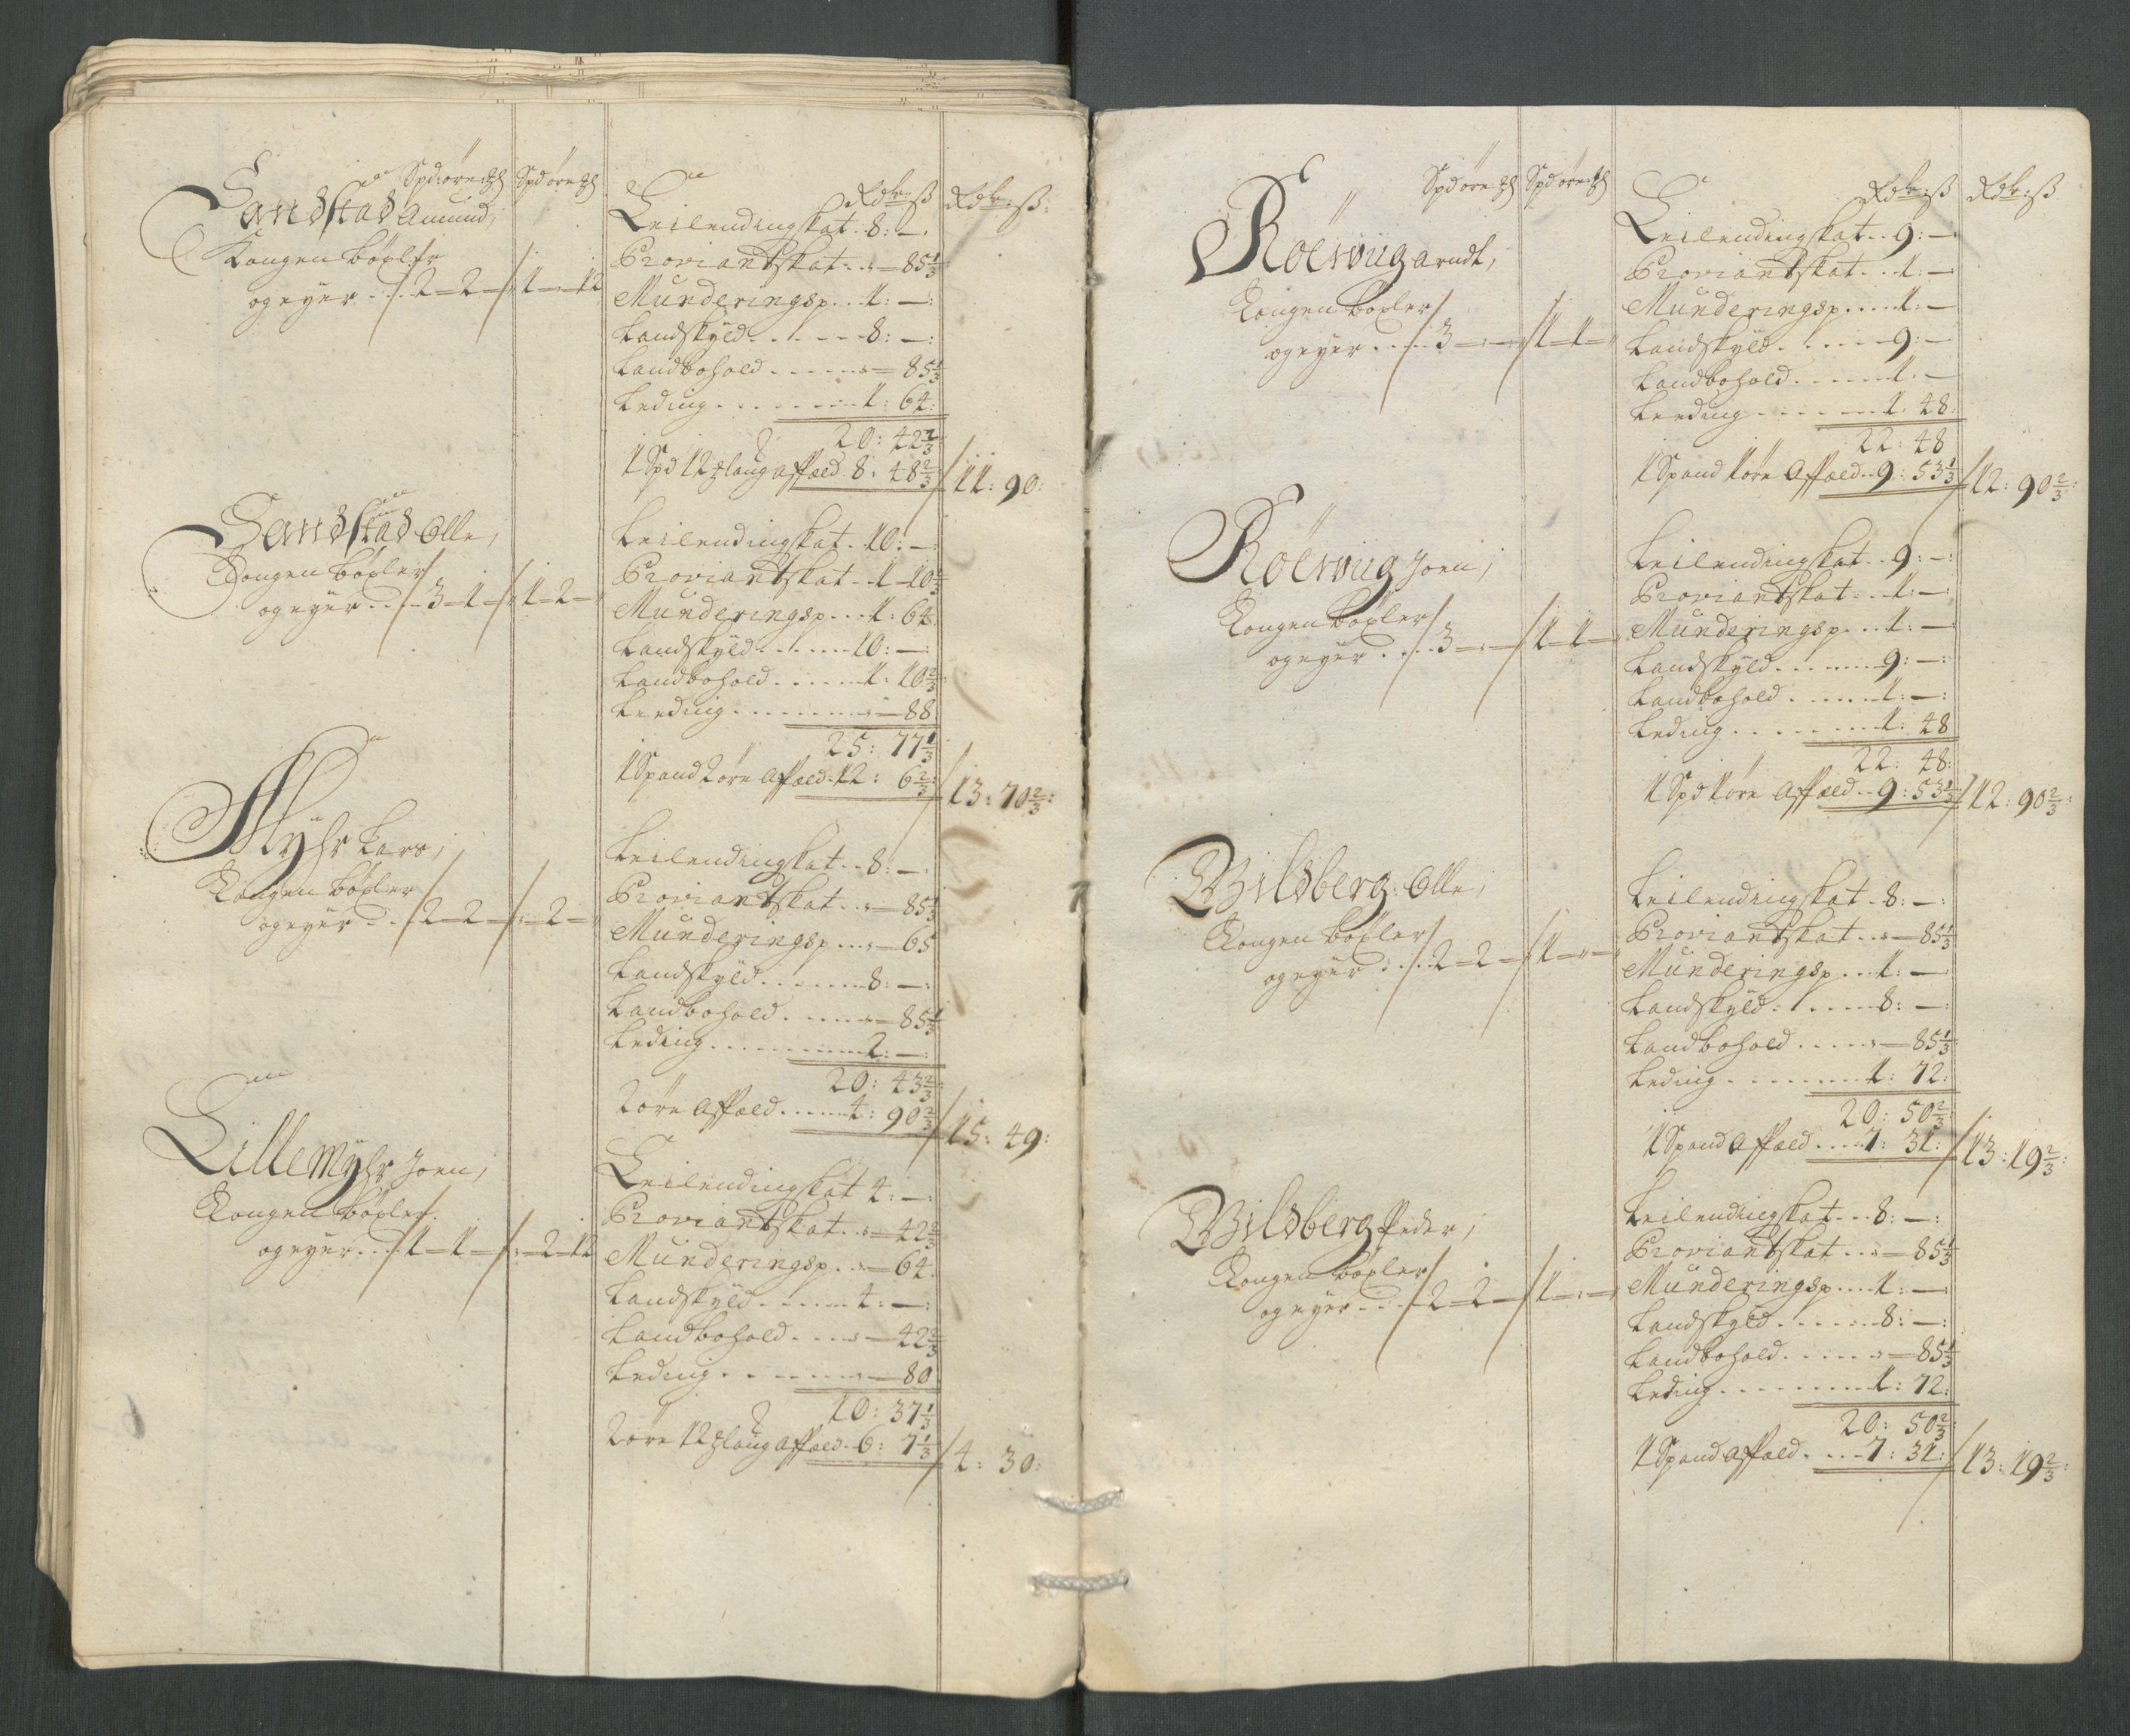 Spd øre ℔ Spd øre ℔ Rdr: ß Rdr: ß:
Sandstad Amund,
Kongen böxler
og eyer . . . 2 - 2 - 1 - 12
Leilendingskat . 8: —
Proviantskat . . " — 85 1/3
Munderingsp . . . 1: —
Landskyld . . . . . . 8: —:
Landbohold . . . . . " — 85 1/3
Leding . . . . . . . . 1: 64:
20: 42 2/3
1 Spd 12 ℔ laug affæld 8: 48 2/3 11: 90:
Sandstad Olle,
Kongen böxler
og eyer . . . 3 - 1 - 1 - 2 -
Leilendingskat . 10: —:
Proviantskat . . 1 - 10 2/3
Munderingsp . . . 1: 64:
Landskyld . . . . . . 10: —:
Landbohold . . . . . 1: 10 2/3
Leeding . . . . . . . " — 88
25: 77 1/3
1 Spand 2 øre affæld 12: 6 2/3: 13: 70 2/3:
Myhr Lars,
Kongen böxler
og eyer . . . 2 - 2 - " - 2 -
Leilendingskat . . 8: —:
Proviantskat . . " — 85 1/3
Munderingsp . . . " — 65
Landskyld . . . . . . 8: —:
Landbohold . . . . . " — 85 1/3
Leding . . . . . . . . 2: —:
20: 43 2/3:
2 øre affæld . . . . . 4: 90 2/3 15: 49:
Lille Myhr Joen,
Kongen böxler
og eyer . . . 1 - 1 - " - 2 - 12
Leilendingskat 4: —:
Proviantskat . . " — 42 2/3
Munderingsp . . " — 64
Landskyld . . . . . . 4: —:
Landbohold . . . . " — 42 2/3
Leding . . . . . . . " — 80
10: 37 1/3
2 øre 12 ℔ laug affæld 6: 7 1/3 4: 30:
Spd øre ℔ Spd øre ℔ Rdr: ß Rdr: ß
Röervug Arndt,
Kongen böxler
og eyer . . . . 3 - " - 1 - 1 -
Leilendingskat . . 9: —
Proviantskat . . . 1: —
Munderingsp . . . . 1: —
Landskyld . . . . . . 9: —
Landbohold . . . . . 1: —
Leeding . . . . . . . 1: 48
22: 48
1 Spand 1 øre affæld . . 9: 53 1/3 12: 90 2/3:
Röervug Joen,
Kongen böxler
og eyer . . . . 3 - " - 1 - 1 -
Leilendingskat . . 9: —:
Proviantskat . . . 1: —:
Munderingsp . . . 1: —:
Landskyld . . . . . . 9: —:
Landbohold . . . . . 1: —:
Leding . . . . . . . 1: 48
22: 48:
1 Spd 1 øre affæld . . 9: 53 1/3 12: 90 2/3:
Wildberg: Olle,
Kongen böxler
og eyer . . . 2 - 2 - 1 - " -
Leilendingskat . 8: —:
Proviantskat . . " — 85 1/3
Munderingsp . . . 1: —:
Landskyld . . . . . . 8: —:
Landbohold . . . . . " — 85 1/3:
Leding . . . . . . . . 1: 72:
20: 50 2/3:
1 Spand affæld . . . . 7: 31: 13: 19 2/3:
Wildberg Peder,
Kongen böxler
og eyer . . . 2 - 2 - 1 - " -
Leilendingskat . . . 8: —:
Proviantskat . . . " — 85 1/3
Munderingsp . . . . 1: —:
Landskyld . . . . . . 8: —:
Landbohold . . . . . " — 85 1/3
Leding . . . . . . . . 1: 72:
20: 50 2/3:
1 Spand affæld . . . . 7: 31: 13: 19 2/3: